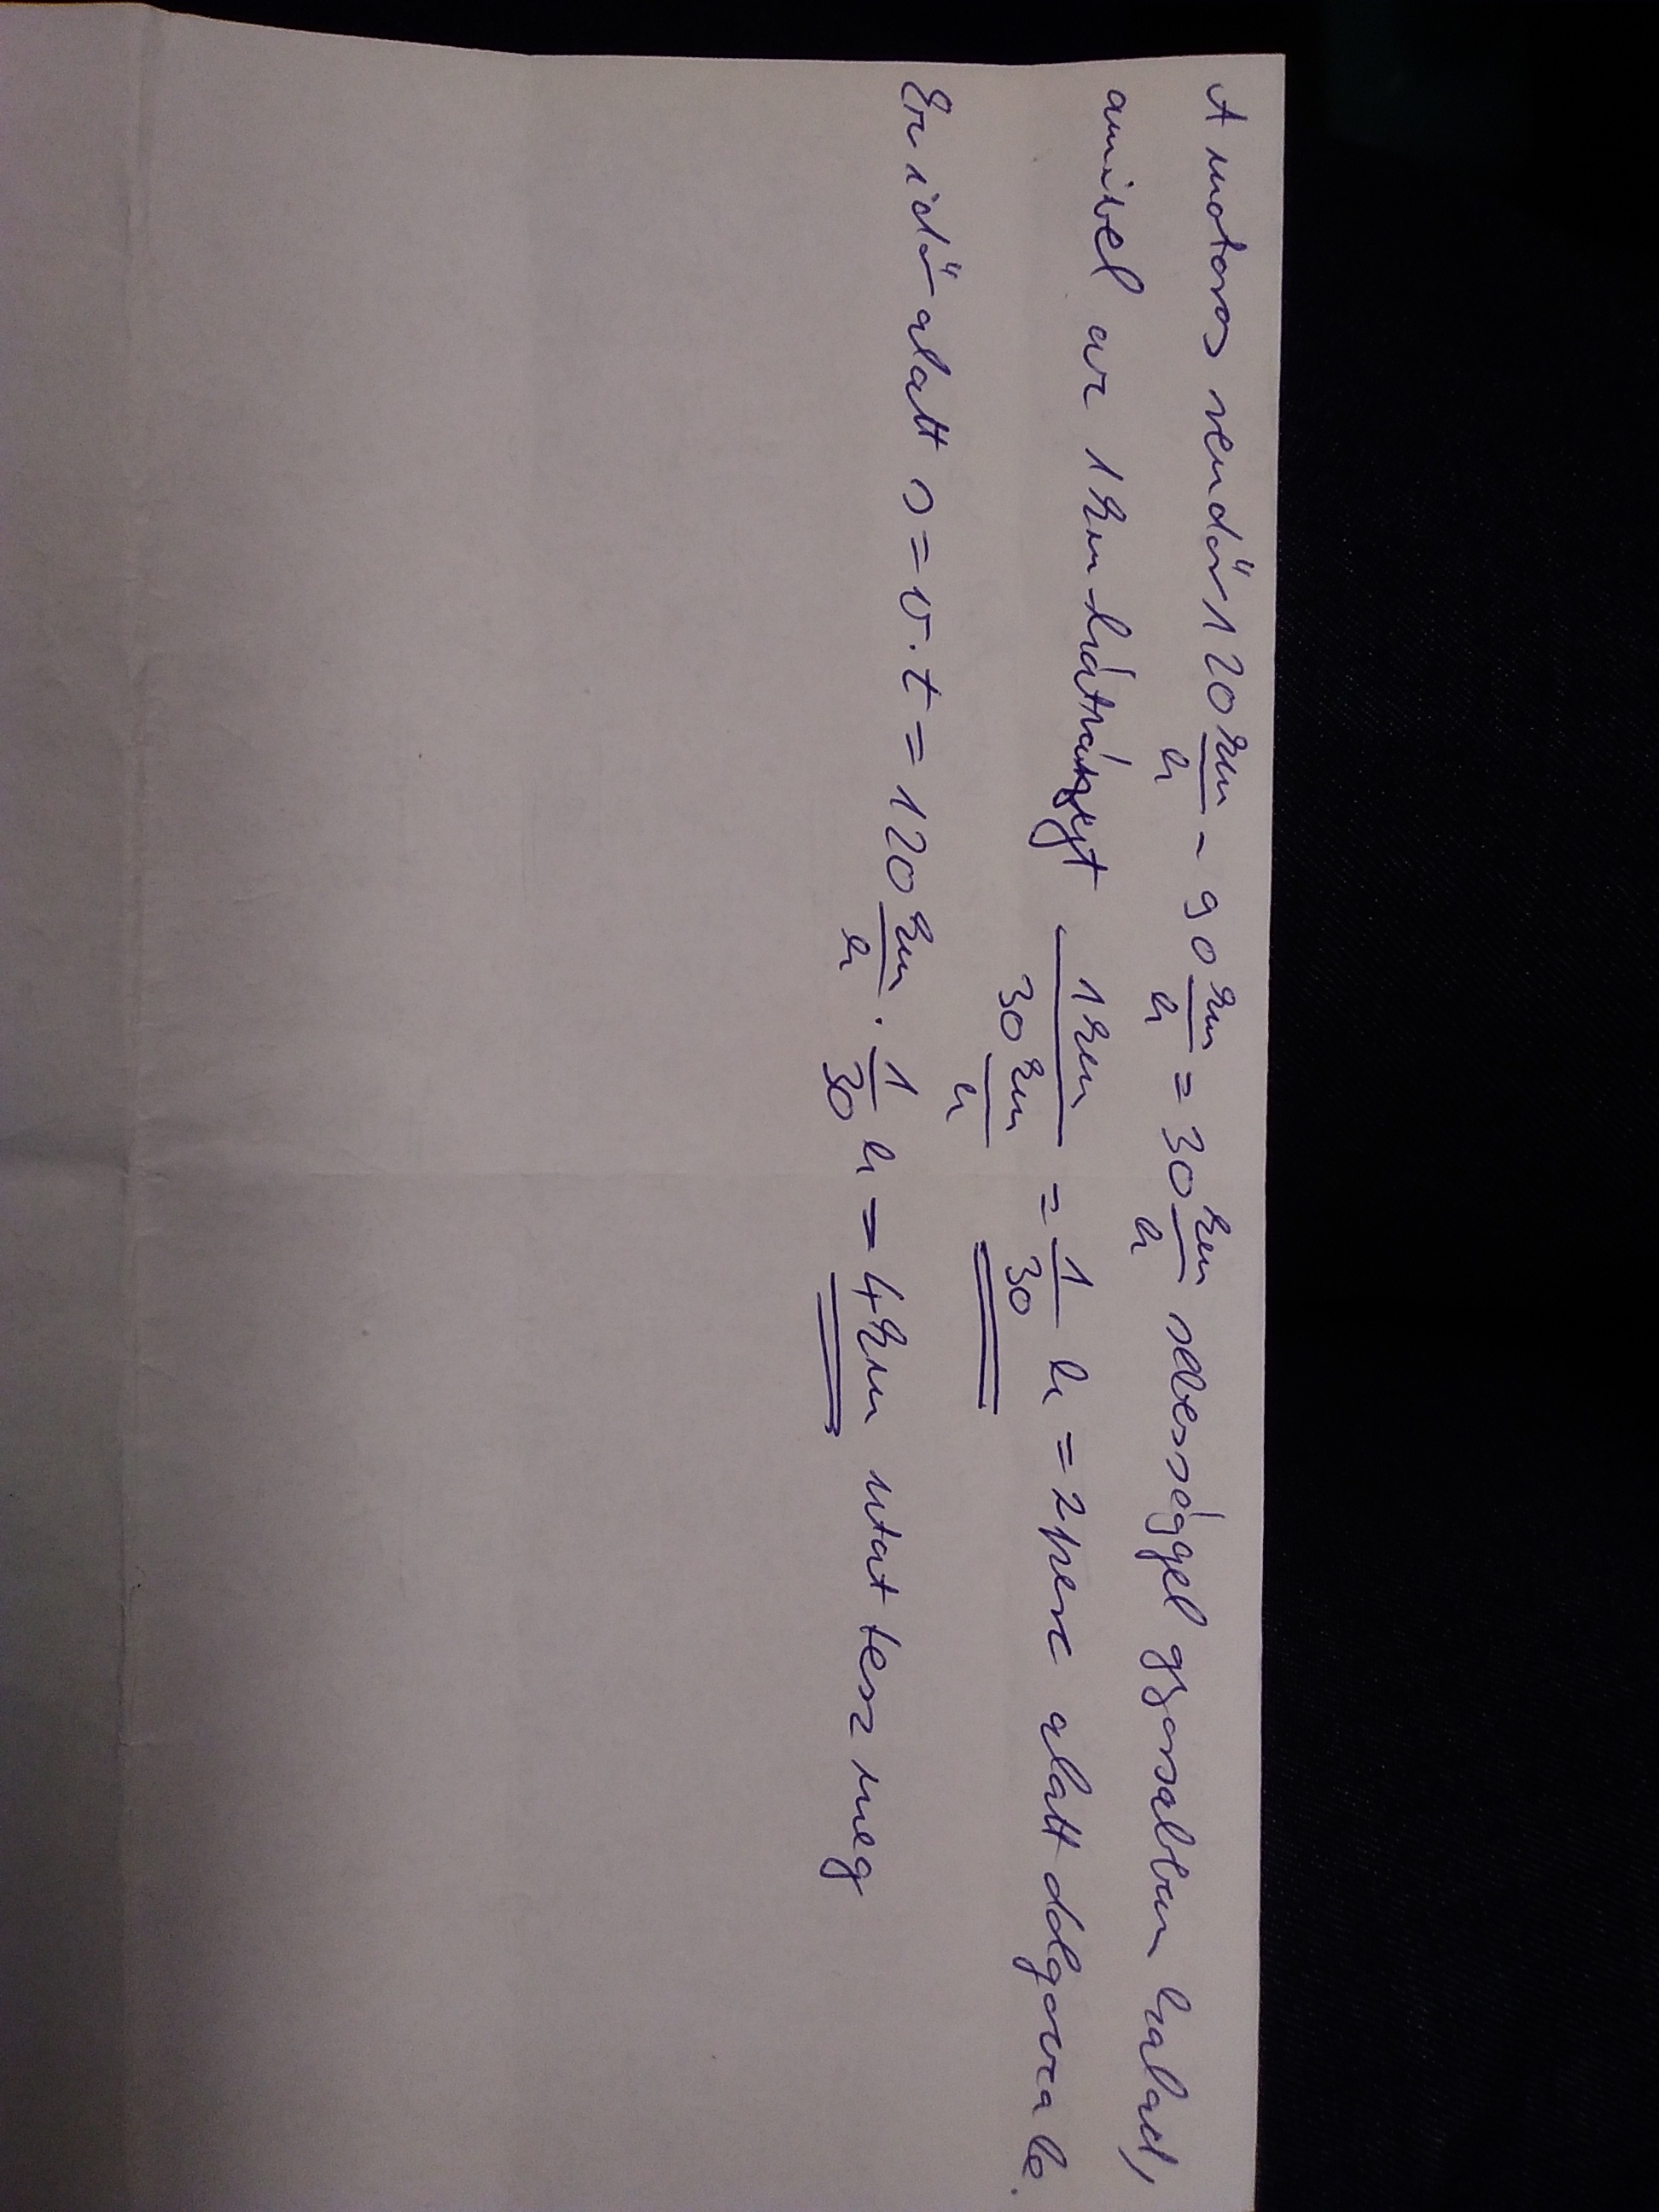 A motoros rendőr 120 km/h - 90 km/h = 30 km/h sebességgel gyorsabban halad,
amivel az 1km hátrányt 1km / 30 km/h = 1/30 h = 2 perc alatt dolgozza le.
Ez idő alatt s = v · t = 120 km/h · 1/30 h = 4km utat tesz meg